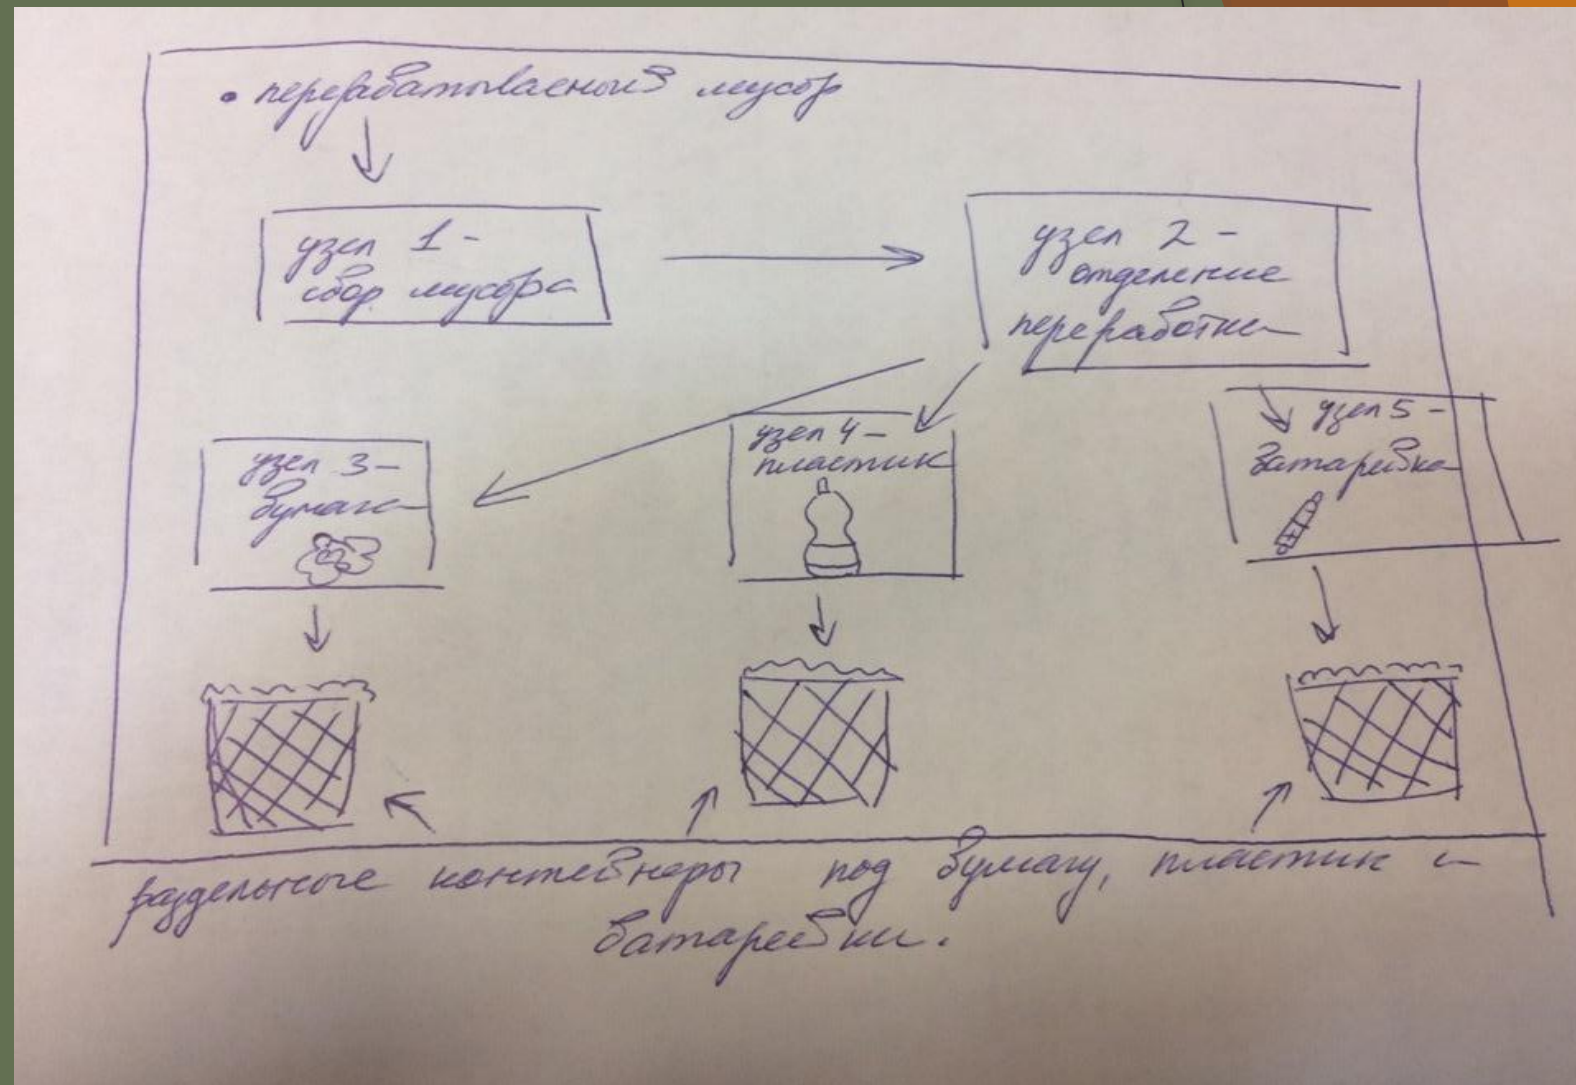 • перерабатываемый мусор
узел 1 -
сбор мусора
узел 2 -
отделение
переработки
узел 3 -
бумага
узел 4 -
пластик
узел 5 -
батарейка
раздельные контейнеры под бумагу, пластик и
батарейки.